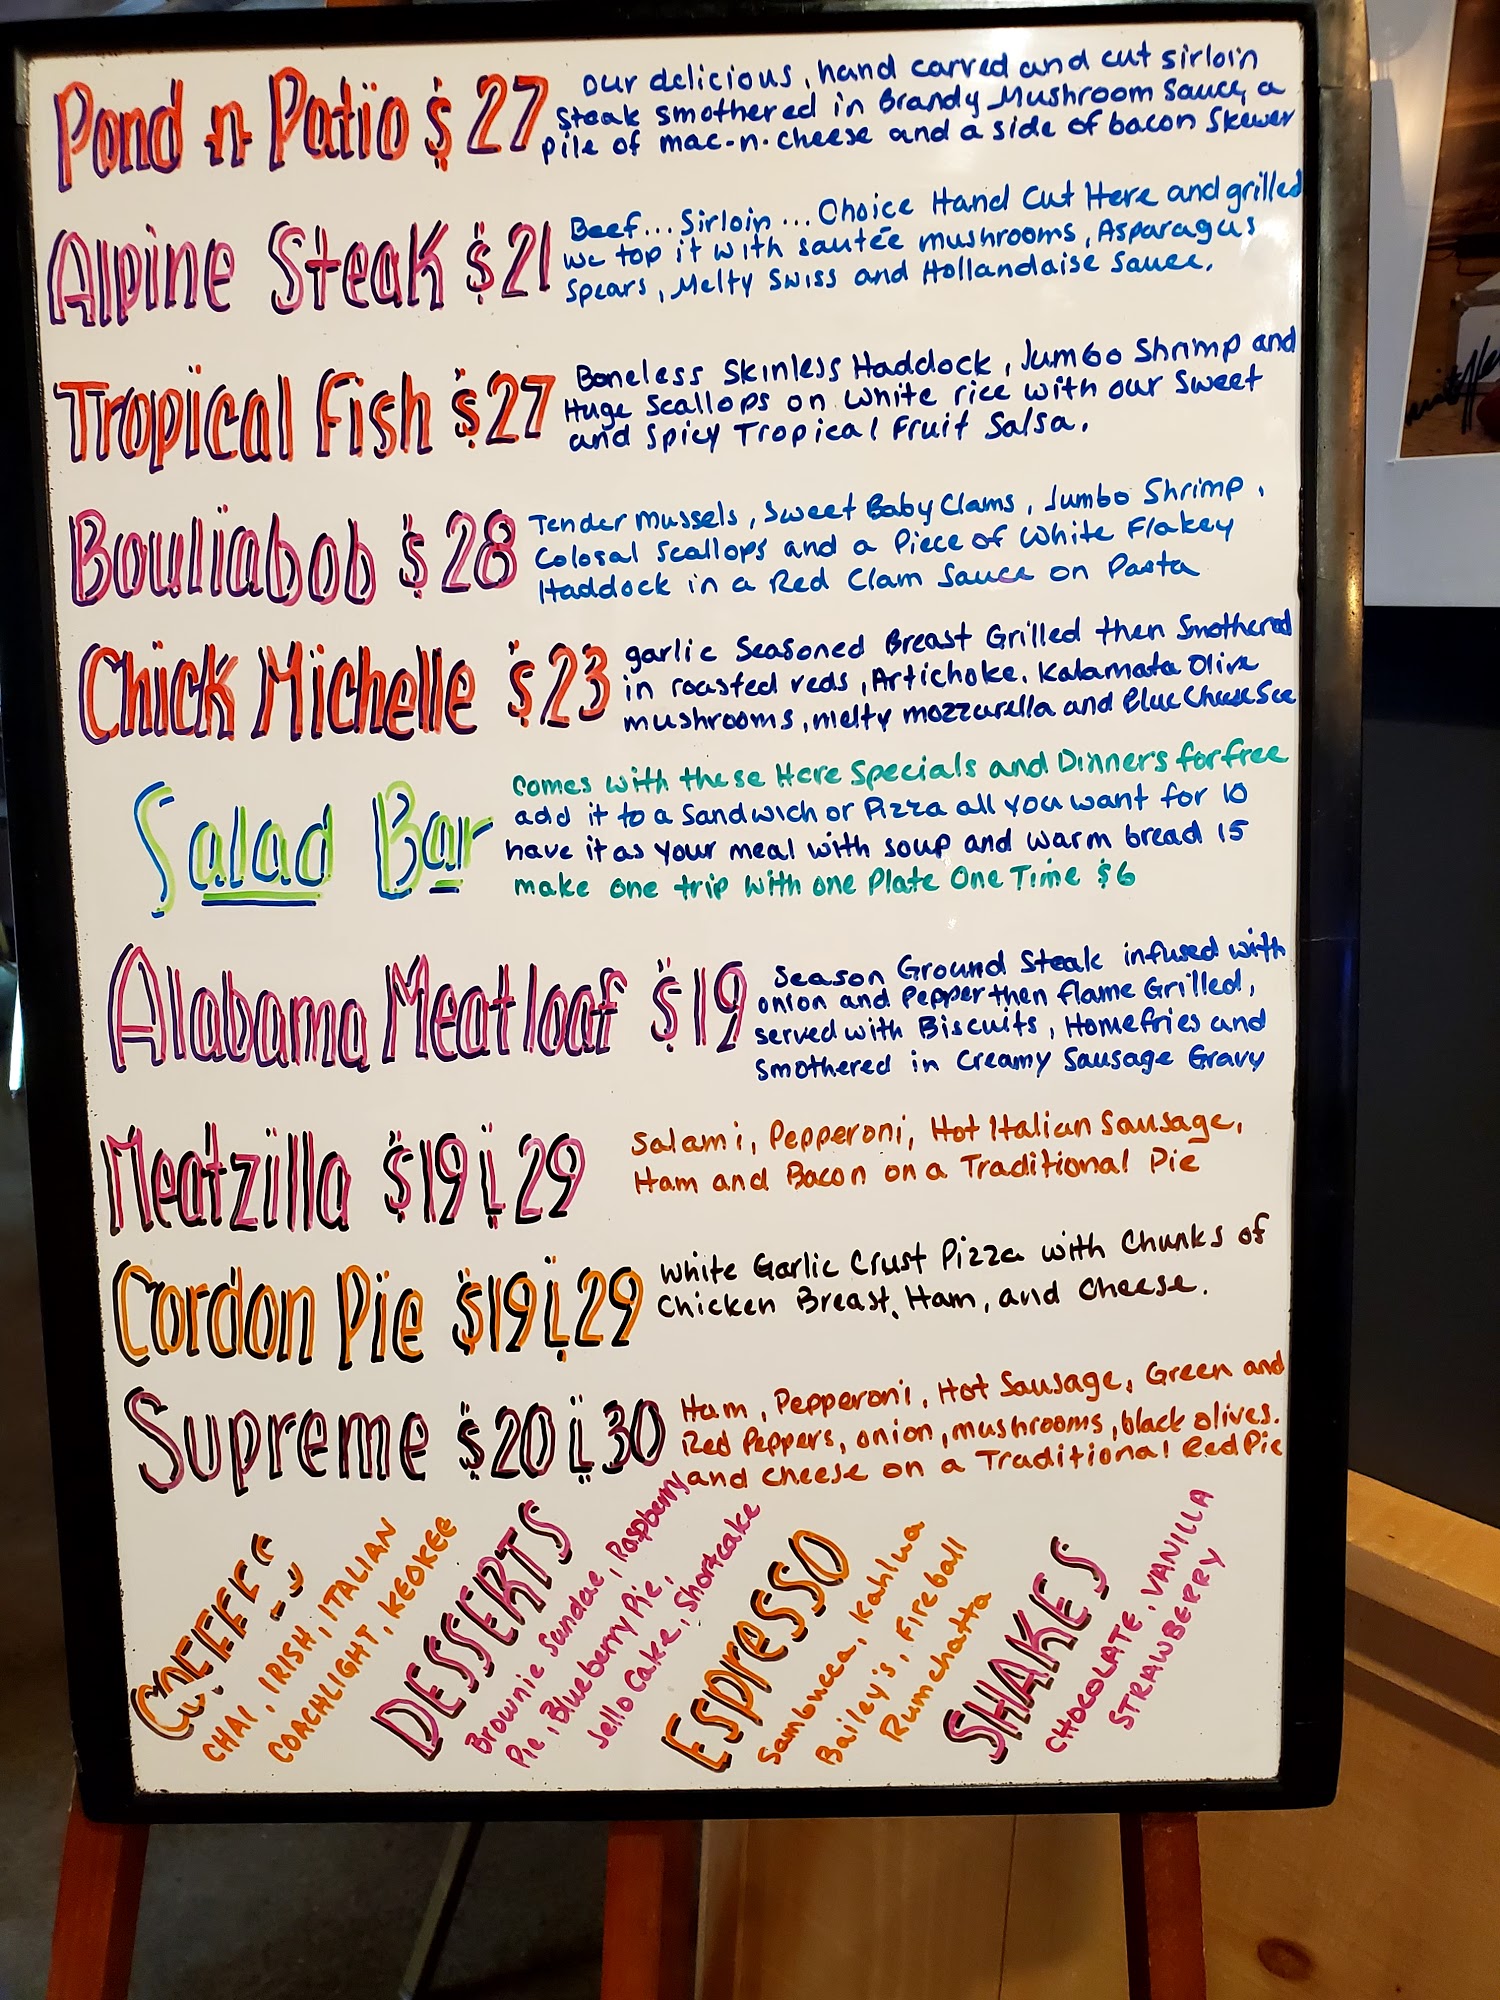 Pond n Patio $27
our delicious, hand carved and cut sirloin
steak smothered in Brandy Mushroom Sauce, a
pile of mac-n-cheese and a side of bacon Skewer
Alpine Steak $21
Beef... Sirloin... Choice Hand Cut Here and grilled
we top it with sautée mushrooms, Asparagus
Spears, Melty Swiss and Hollandaise Sauce.
Tropical Fish $27
Boneless Skinless Haddock, Jumbo Shrimp and
Huge Scallops on white rice with our Sweet
and Spicy Tropical Fruit Salsa.
Bouliabob $28
Tender mussels, Sweet Baby Clams, Jumbo Shrimp,
Colosal Scallops and a Piece of White Flakey
Haddock in a Red Clam Sauce on Pasta
Chick Michelle $23
garlic Seasoned Breast Grilled then Smothered
in roasted reds, Artichoke, Kalamata Olive
mushrooms, melty mozzarella and Blue Cheese Sce
Salad Bar
Comes with these Here Specials and Dinners for free
add it to a Sandwich or Pizza all you want for 10
have it as your meal with soup and warm bread 15
make one trip with one Plate One Time $6
Alabama Meatloaf $19
Season Ground Steak infused with
onion and Pepper then flame Grilled,
served with Biscuits, Homefries and
Smothered in Creamy Sausage Gravy
Meatzilla $19 L 29
Salami, Pepperoni, Hot Italian Sausage,
Ham and Bacon on a Traditional Pie
Cordon Pie $19 L 29
White Garlic Crust Pizza with Chunks of
Chicken Breast, Ham, and Cheese.
Supreme $20 L 30
Ham, Pepperoni, Hot Sausage, Green and
Red Peppers, onion, mushrooms, black olives.
and cheese on a Traditional Red Pie
COFFEES
CHAI, IRISH, ITALIAN
COACHLIGHT, KEOKEE
DESSERTS
Brownie Sundae, Raspberry
Pie, Blueberry Pie,
Jello Cake, Shortcake
Espresso
Sambucca, Kahlua
Bailey's, Fireball
Rumchatta
SHAKES
CHOCOLATE, VANILLA
STRAWBERRY